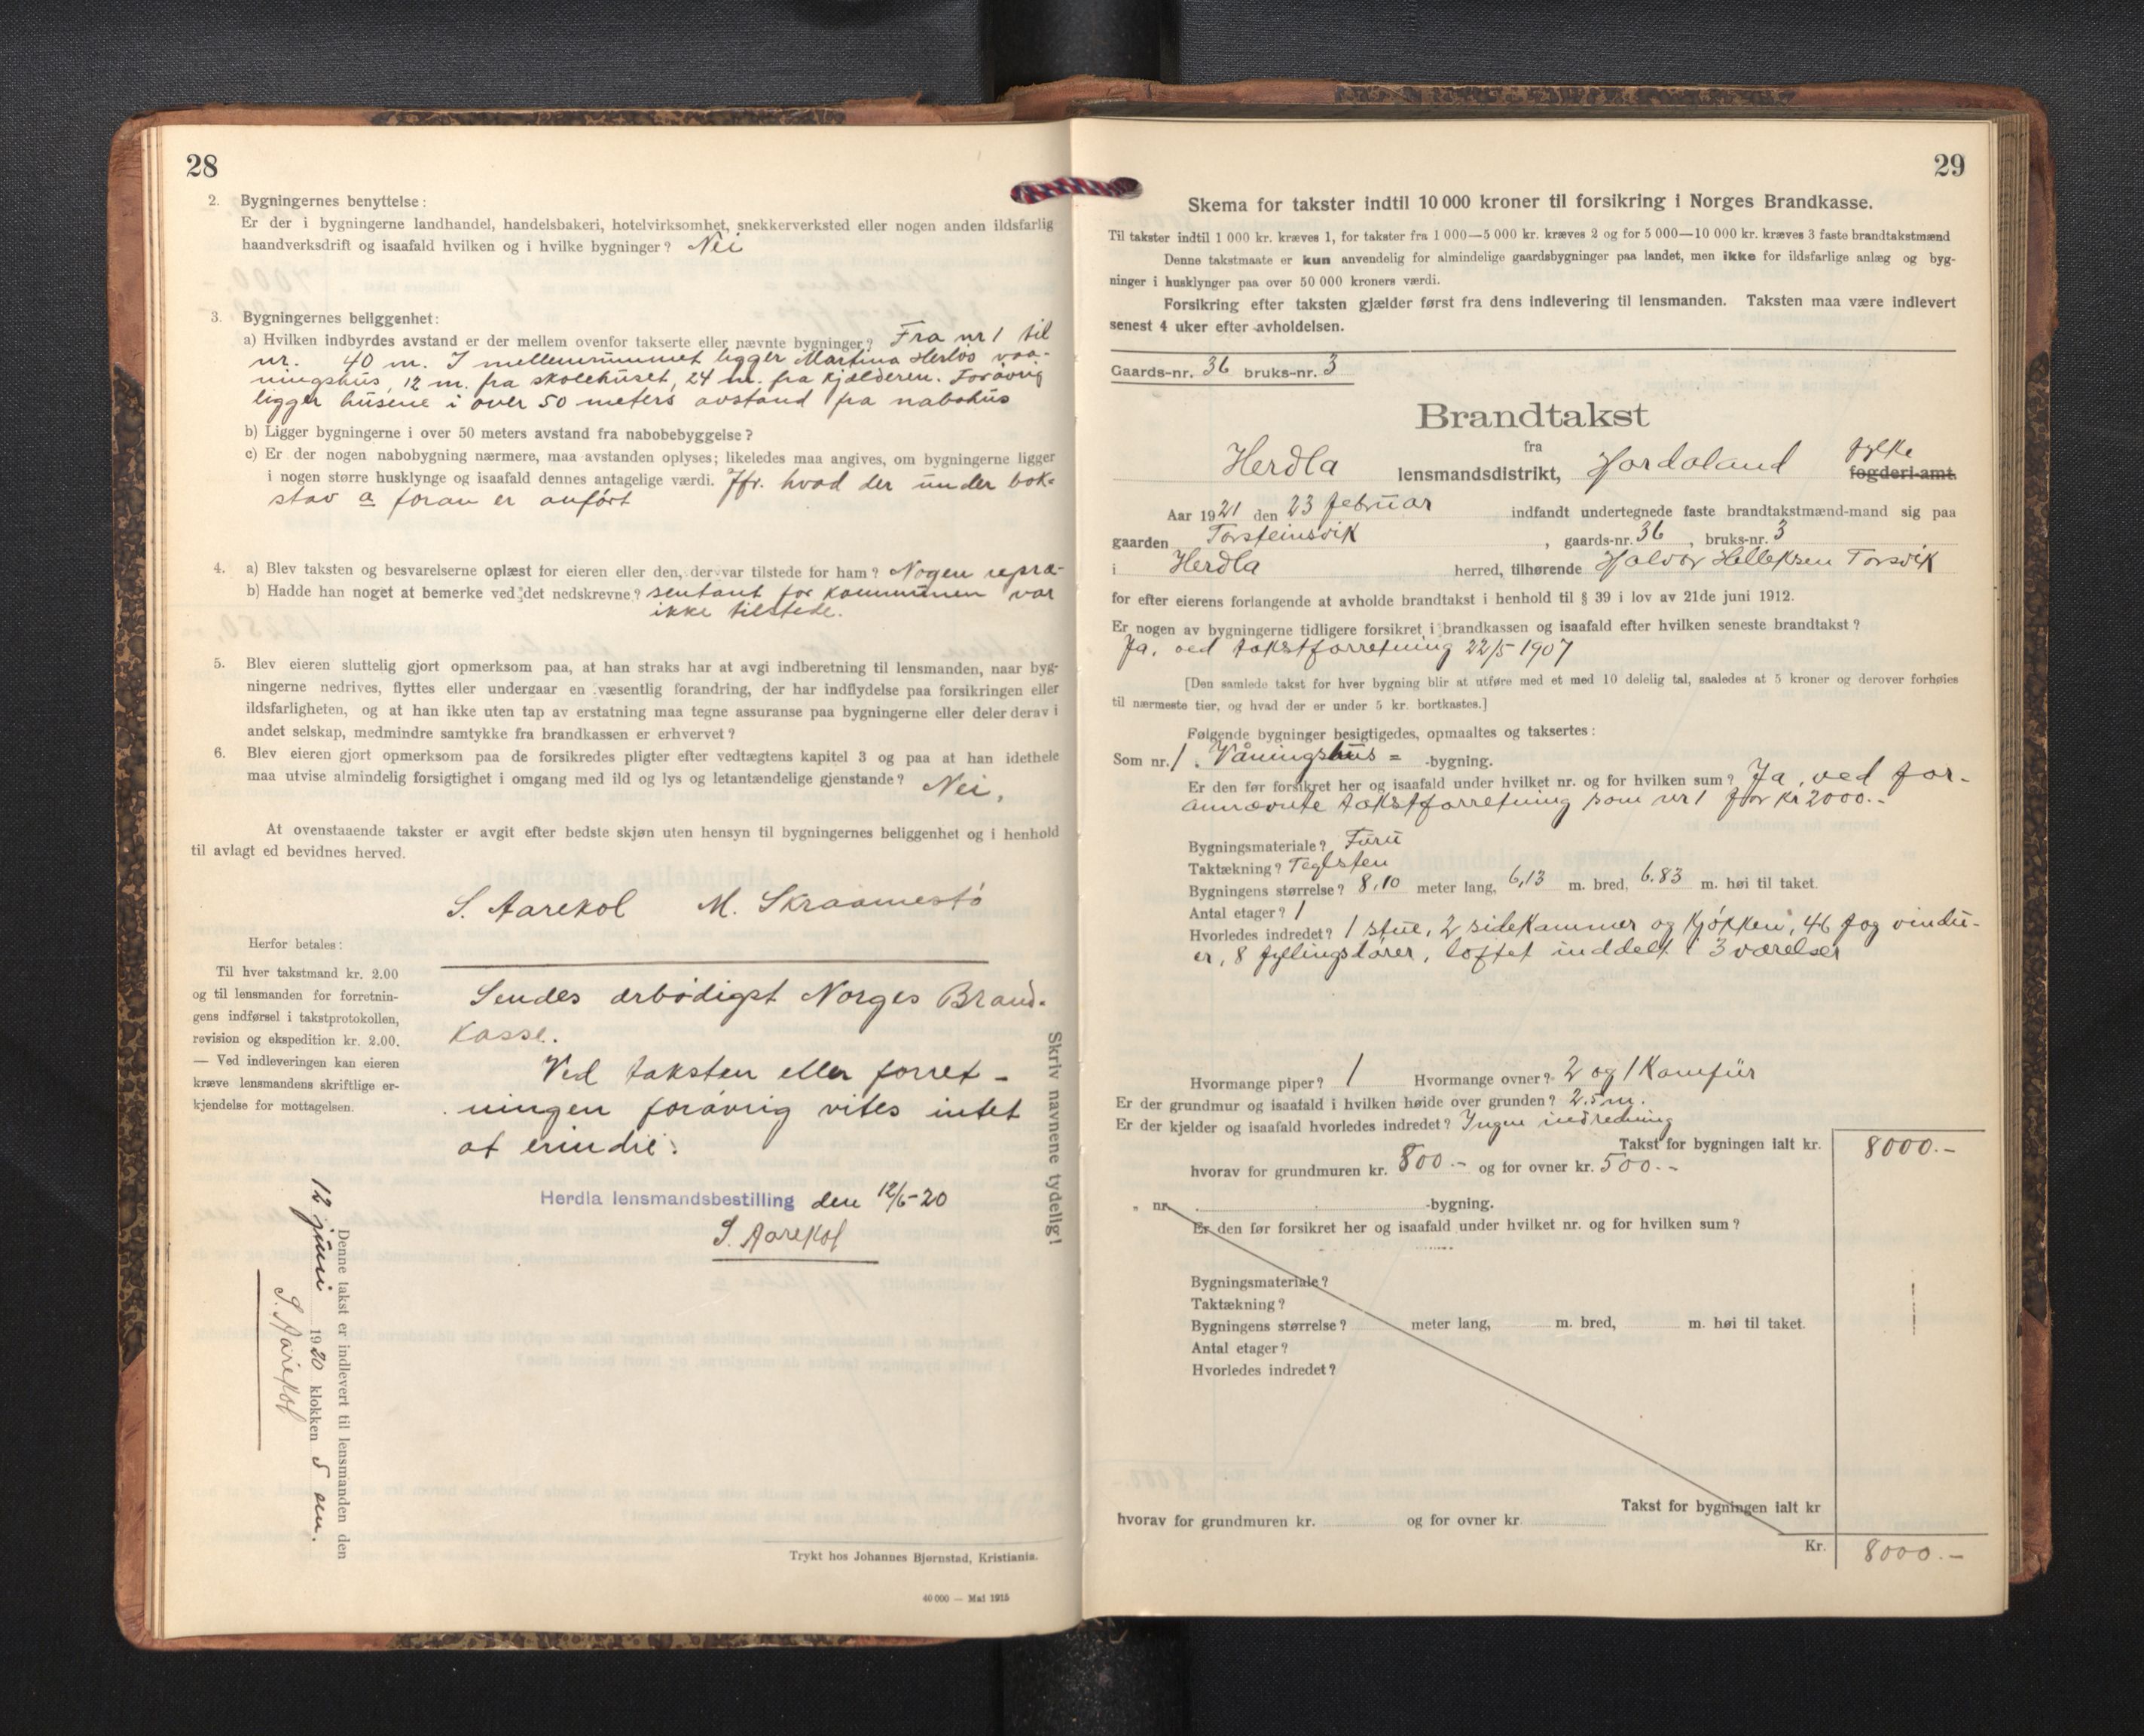 28
2. Bygningernes benyttelse:
Er der i bygningerne landhandel, handelsbakeri, hotelvirksomhet, snekkerverksted eller nogen anden ildsfarlig
haandverksdrift og isaafald hvilken og i hvilke bygninger? Nei
3. Bygningernes beliggenhet:
a) Hvilken indbyrdes avstand er der mellem ovenfor takserte eller nævnte bygninger? Fra nr 1 til
nr. 40 m. I mellemrummet ligger Martina Herlös vaa-
ningshus, 12 m. fra skolehuset, 24 m. fra kjælderen. Forøvrig
ligger husene i over 50 meters avstand fra nabohus
b) Ligger bygningerne i over 50 meters avstand fra nabobebyggelse?
c) Er der nogen nabobygning nærmere, maa avstanden oplyses; likeledes maa angives, om bygningerne ligger
i nogen større husklynge og isaafald dennes antagelige værdi. Jfr. hvad der under bok-
stav a foran er anført
4. a) Blev taksten og besvarelserne oplæst for eieren eller den, der var tilstede for ham? Nogen repræ-
b) Hadde han noget at bemerke ved det nedskrevne? sentant for kommunen var
ikke tilstede.
5. Blev eieren sluttelig gjort opmerksom paa, at han straks har at avgi indberetning til lensmanden, naar byg-
ningerne nedrives, flyttes eller undergaar en væsentlig forandring, der har indflydelse paa forsikringen eller
ildsfarligheten, og at han ikke uten tap av erstatning maa tegne assuranse paa bygningerne eller deler derav i
andet selskap, medmindre samtykke fra brandkassen er erhvervet?
6. Blev eieren gjort opmerksom paa de forsikredes pligter efter vedtægtens kapitel 3 og paa at han idethele
maa utvise almindelig forsigtighet i omgang med ild og lys og letantændelige gjenstande? Nei.
At ovenstaaende takster er avgit efter bedste skjøn uten hensyn til bygningernes beliggenhet og i henhold
til avlagt ed bevidnes herved.
S. Aarekol M. Skraamestø
Herfor betales:
Til hver takstmand kr. 2.00
og til lensmanden for forretnin-
gens indførsel i takstprotokollen,
revision og ekspedition kr. 2.00.
— Ved indleveringen kan eieren
kræve lensmandens skriftlige er-
kjendelse for mottagelsen.
Sendes ærbødigst Norges Brand-
kasse.
Ved taksten eller forret-
ningen forøvrig vites intet
at erindre.
Herdla lensmandsbestilling den 12/6-20
S. Aarekol
Skriv navnene tydelig!
Denne takst er indlevert til lensmanden den
12 juni 1920 klokken 5 em.
S. Aarekol
Trykt hos Johannes Bjørnstad, Kristiania.
40 000 — Mai 1915
29
Skema for takster indtil 10 000 kroner til forsikring i Norges Brandkasse.
Til takster indtil 1 000 kr. kræves 1, for takster fra 1 000—5 000 kr. kræves 2 og for 5 000—10 000 kr. kræves 3 faste brandtakstmænd
Denne takstmaate er kun anvendelig for almindelige gaardsbygninger paa landet, men ikke for ildsfarlige anlæg og byg-
ninger i husklynger paa over 50 000 kroners værdi.
Forsikring efter taksten gjælder først fra dens indlevering til lensmanden. Taksten maa være indlevert
senest 4 uker efter avholdelsen.
Gaards-nr. 36 bruks-nr. 3
Brandtakst
fra
Herdla lensmandsdistrikt, Hordaland fylke
fogderi-amt.
Aar 1921 den 23 februar indfandt undertegnede faste brandtakstmænd-mand sig paa
gaarden Torsteinsvik, gaards-nr. 36, bruks-nr. 3
i Herdla herred, tilhørende Halvor Helleksen Torsvik
for efter eierens forlangende at avholde brandtakst i henhold til § 39 i lov av 21de juni 1912.
Er nogen av bygningerne tidligere forsikret i brandkassen og isaafald efter hvilken seneste brandtakst?
Ja, ved takstforretning 22/5-1907
[Den samlede takst for hver bygning blir at utføre med et med 10 delelig tal, saaledes at 5 kroner og derover forhøies
til nærmeste tier, og hvad der er under 5 kr. bortkastes.]
Følgende bygninger besigtigedes, opmaaltes og taksertes:
Som nr. 1. Våningshus= -bygning.
Er den før forsikret her og isaafald under hvilket nr. og for hvilken sum? Ja, ved for-
annævnte takstforretning som nr 1 for kr 2000.-
Bygningsmateriale? Furu
Taktækning? Teglsten
Bygningens størrelse? 8,10 meter lang, 6,13 m. bred, 6.83 m. høi til taket.
Antal etager? 1
Hvorledes indredet? 1 stue, 2 sidekammer og kjøkken, 46 fag vindu-
er, 8 fyllingsdører, loftet inddelt i 3 værelser
Hvormange piper? 1 Hvormange ovner? 2 og 1 Komfür
Er der grundmur og isaafald i hvilken høide over grunden? 2.5 m.
Er der kjelder og isaafald hvorledes indredet? Ingen indredning
Takst for bygningen ialt kr. 8000.-
hvorav for grundmuren kr. 800.- og for ovner kr. 500.-
" nr. -bygning.
Er den før forsikret her og isaafald under hvilket nr. og for hvilken sum?
Bygningsmateriale?
Taktækning?
Bygningens størrelse? meter lang, m. bred, m. høi til taket.
Antal etager?
Hvorledes indredet?
Takst for bygningen ialt kr
hvorav for grundmuren kr. og for ovner kr.
Kr. 8000.-